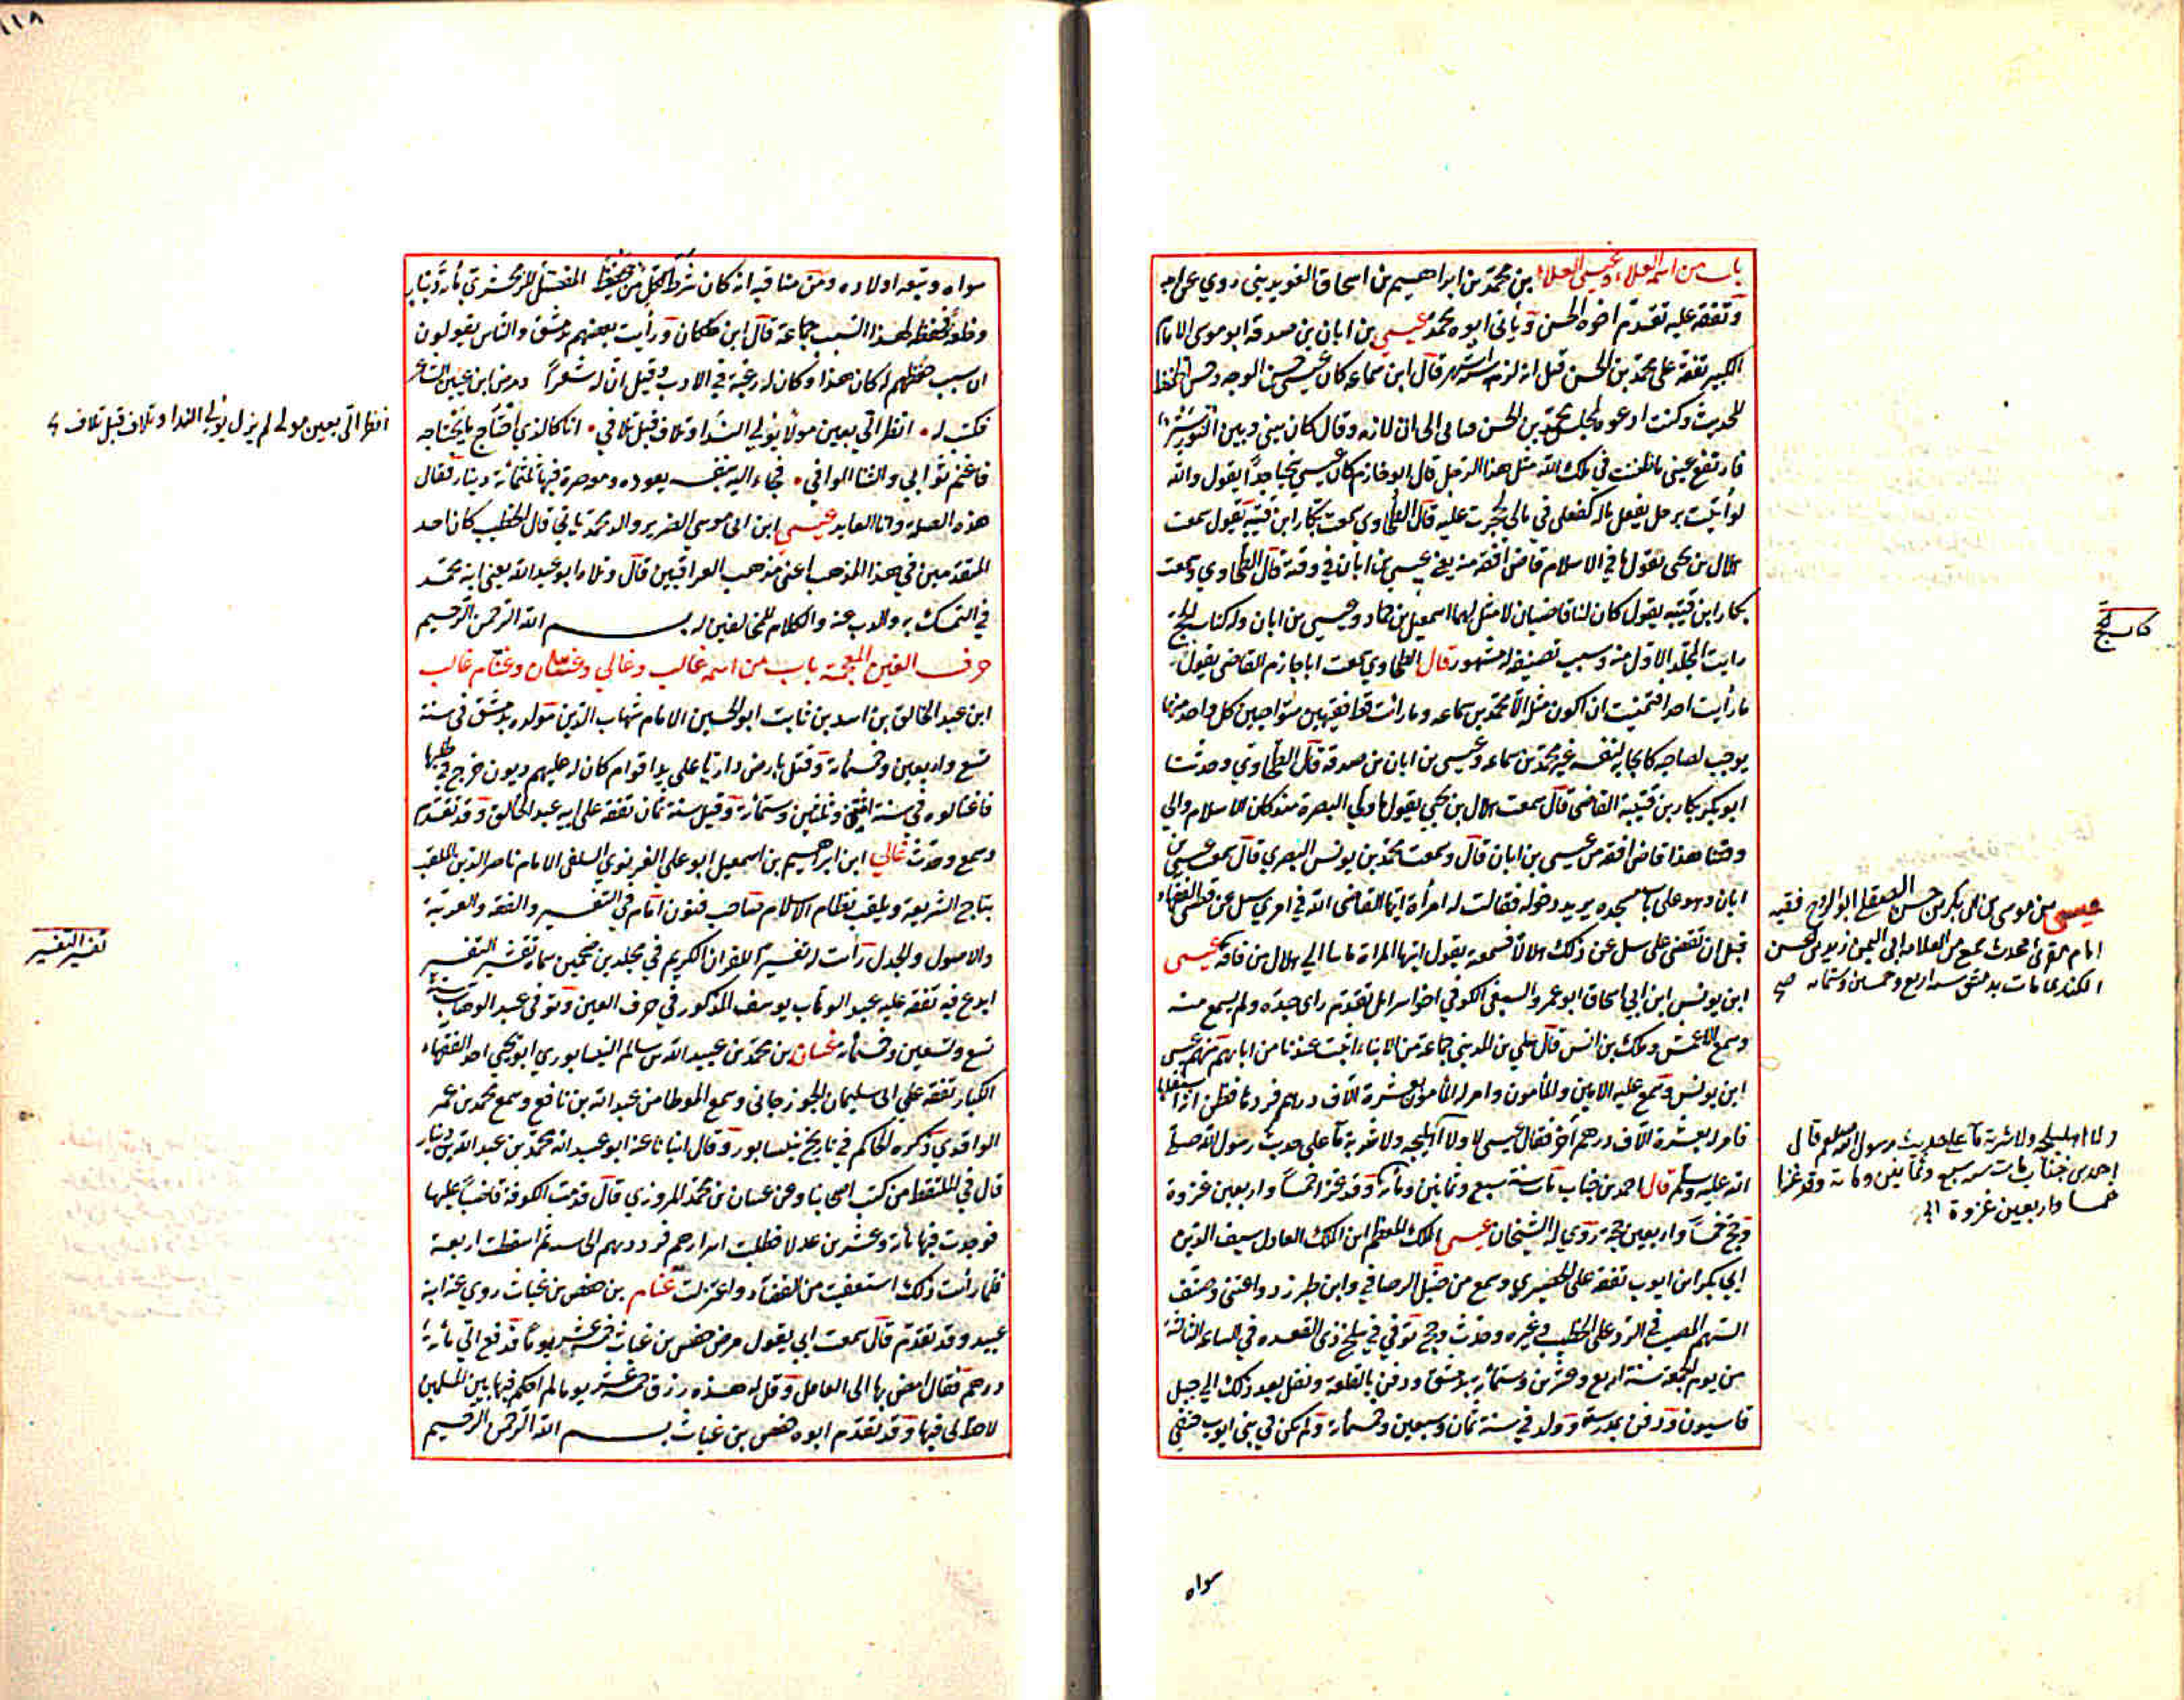 باب من اسمه العلاء وعيسى العلاء بن محمد بن ابراهيم بن اسحاق الغويديني روى عن ابيه
وتفقه عليه تقدم اخوه الحسن ويأتي ابوه محمد عيسى بن ابان بن صدقه ابو موسى الامام
الكبير تفقه على محمد بن الحسن قيل انه لزمه ستة اشهر قال ابن سماعه كان عيسى حسن الوجه وحسن الحفظ
للحديث وكنت ادعوه لمجلس محمد بن الحسن فيأبى الى ان لازمه وقال كان بيني وبين النور ستر
فارتفع عني ما ظننت في ملك الله مثل هذا الرجل قال ابو خازم كان عيسى سخيا جدا يقول والله
لو أتيت برجل يفعل بماله كفعلي في مالي لحجرت عليه قال الطحاوي سمعت بكار ابن قتيبه يقول سمعت
هلال بن يحيى يقول ما في الاسلام قاض افقه منه يعني عيسى بن ابان في وقته قال الطحاوي وسمعت
بكار ابن قتيبه يقول كان لنا قاضيان لا مثل لهما اسمعيل بن حماد وعيسى بن ابان وله كتاب الحج
رايت المجلد الاول منه وسبب تصنيفه له مشهور قال الطحاوي سمعت ابا خازم القاضي يقول
ما رأيت احدا فتمنيت ان اكون مثله الا محمد بن سماعه وما رأيت قط فقيهين متواجبين كل واحد منهما
يوجب لصاحبه كايجابه لنفسه غير محمد بن سماعه وعيسى بن ابان بن صدقه قال الطحاوي وحدثنا
ابو بكر بكار بن قتيبة القاضي قال سمعت هلال بن يحيى يقول ما ولي البصرة منذ كان الاسلام والى
وقتنا هذا قاض افقه من عيسى بن ابان قال وسمعت محمد بن يونس البصري قال سمعت عيسى بن
ابان وهو على باب مسجده يريد دخوله فقالت له امرأة ايها القاضي الله في امري سل عن قطن القضاء
قبل ان تقضي على سل عن ذلك هلالا فسمعه يقول ايتها المراة ما بنا الى هلال من فاقه عيسى
ابن يونس ابن ابي اسحاق ابو عمرو السبيعي الكوفي اخو اسرائل تقدم راى جده ولم يسمع منه
وسمع الاعمش وملك بن انس قال علي بن المديني جماعة من الابناء اثبت عندنا من ابائهم منهم عيسى
ابن يونس وسمع عليه الامين والمأمون وامر له المأمون بعشرة آلاف درهم فردها فظن انه استقلها
فامر له بعشرة الآف درهم أخر فقال عيسى لا ولا اهليلجه ولا شربة ما على حديث رسول الله صلى
الله عليه وسلم قال احمد بن جناب مات سنة سبع وثمانين ومائه وقد غزا خمسا واربعين غزوة
وحج خمسا واربعين حجة روى له الشيخان عيسى الملك المعظم ابن الملك العادل سيف الدين
ابي بكر ابن ايوب تفقه على الحصيري وسمع من حنبل الرصافي وابن طبرزد واعتنى وصنف
السهم المصيب في الرد على الخطيب وغيره وحدث وحج توفي في سلخ ذي القعده في الساعة الثالثة
من يوم الجمعة سنة اربع وعشرين وستمائة بدمشق ودفن بالقلعة ونقل بعد ذلك الى جبل
قاسيون ودفن بمدرسته وولد في سنة ثمان وسبعين وخمسمائة ولم يكن في بني ايوب حنفي
كتاب الحج
عيسى بن موسى بن ابي بكر بن حسن الصقلي ابو الروح فقيه
امام مقرئ محدث سمع من العلامه ابي اليمن زيد بن الحسن
الكندي مات بدمشق سنه اربع وخمسين وستمائه صح
ولا اهليلجه ولا شربة ما على حديث رسول الله صلعم قال
احمد بن جناب مات سنه سبع وثمانين ومائه وقد غزا
خمسا واربعين غزوة الخ
سواه
١١٨
سواه وتبعه اولاده ومن مناقبه انه كان شرط لكل من يحفظ المفصل للزمخشري مائة دينار
وخلعه فحفظه لهذا السبب جماعة قال ابن خلكان ورأيت بعضهم بدمشق والناس يقولون
ان سبب حفظهم له كان هذا وكان له رغبة في الادب وقيل ان له شعرا ومرض ابن عنين الشاعر
فكتب له انظر الي بعين مولى لم يزل يولي الندا وتلاف قبل تلافي انا كالذي احتاج ما يحتاجه
فاغنم ثوابي والثنا الوافي فجاء اليه بنفسه يعوده ومعه صرة فيها ثلثمائة دينار فقال
هذه الصله وانا العايد عيسى ابن ابي موسى الضرير والد محمد ياتي قال الخطيب كان احد
المتقدمين في هذا المذهب اعني مذهب العراقيين قال وتلاه ابو عبد الله يعني ابنه محمد
في التمسك به والذب عنه والكلام للمخالفين له بسم الله الرحمن الرحيم
حرف الغين المعجمة باب من اسمه غالب وغالي وغسان وغنام غالب
ابن عبد الخالق بن اسد بن ثابت ابو الحسين الامام شهاب الدين مولده بدمشق في سنة
تسع واربعين وخمسمائة وقتل بارض داريا على يد اقوام كان له عليهم ديون خرج في طلبها
فاغتالوه في سنة اثنتين وثلثين وستمائة وقيل سنة ثمان تفقه على ابيه عبد الخالق وقد تقدم
وسمع وحدث غالي ابن ابراهيم بن اسمعيل ابو علي الغزنوي السلفي الامام ناصر الدين الملقب
بتاج الشريعه ويلقب نظام الاسلام صاحب فنون امام في التفسير والفقه والعربية
والاصول والجدل رأيت له تفسيرا للقران الكريم في مجلدين ضخمين سماه تقشير التفسير
ابدع فيه تفقه عليه عبد الوهاب يوسف المذكور في حرف العين وتوفي عبد الوهاب سنة
تسع وتسعين وخمسمائة غسان بن محمد بن عبيد الله بن سالم النيسابوري ابو يحيى احد الفقهاء
الكبار تفقه على ابي سليمان الجوزجاني وسمع الموطا من عبد الله بن نافع وسمع محمد بن عمر
الواقدي ذكره الحاكم في تاريخ نيسابور وقال انبانا عنه ابو عبد الله محمد بن عبد الله بن دينار
قال في الملتقط من كتب اصحابنا وعن غسان بن محمد المروزي قال قدمت الكوفة قاضيا عليها
فوجدت فيها مائة وعشرين عدلا فطلبت اسرارهم فرددتهم الى ستة ثم اسقطت اربعة
فلما رأيت ذلك استعفيت من القضاء واعتزلت غنام بن حفص بن غياث روى عنه ابنه
عبيد وقد تقدم قال سمعت ابي يقول مرض حفص بن غياث خمسة عشر يوما فدفع الي مائة
درهم فقال امض بها الى العامل وقل له هذه رزق خمسة عشر يوما لم احكم فيها بين المسلمين
لاحظ لي فيها وقد تقدم ابوه حفص بن غياث بسم الله الرحمن الرحيم
انظر الي بعين مولى لم يزل يولي الندا وتلاف قبل تلاف
تقشير التفسير